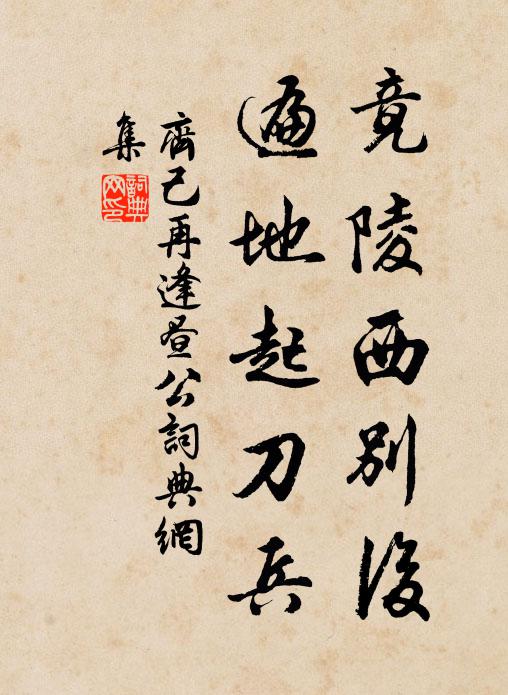 竟陵西别後
遍地起刀兵
齊己再逢昼公詞典網
集
詞典
网印